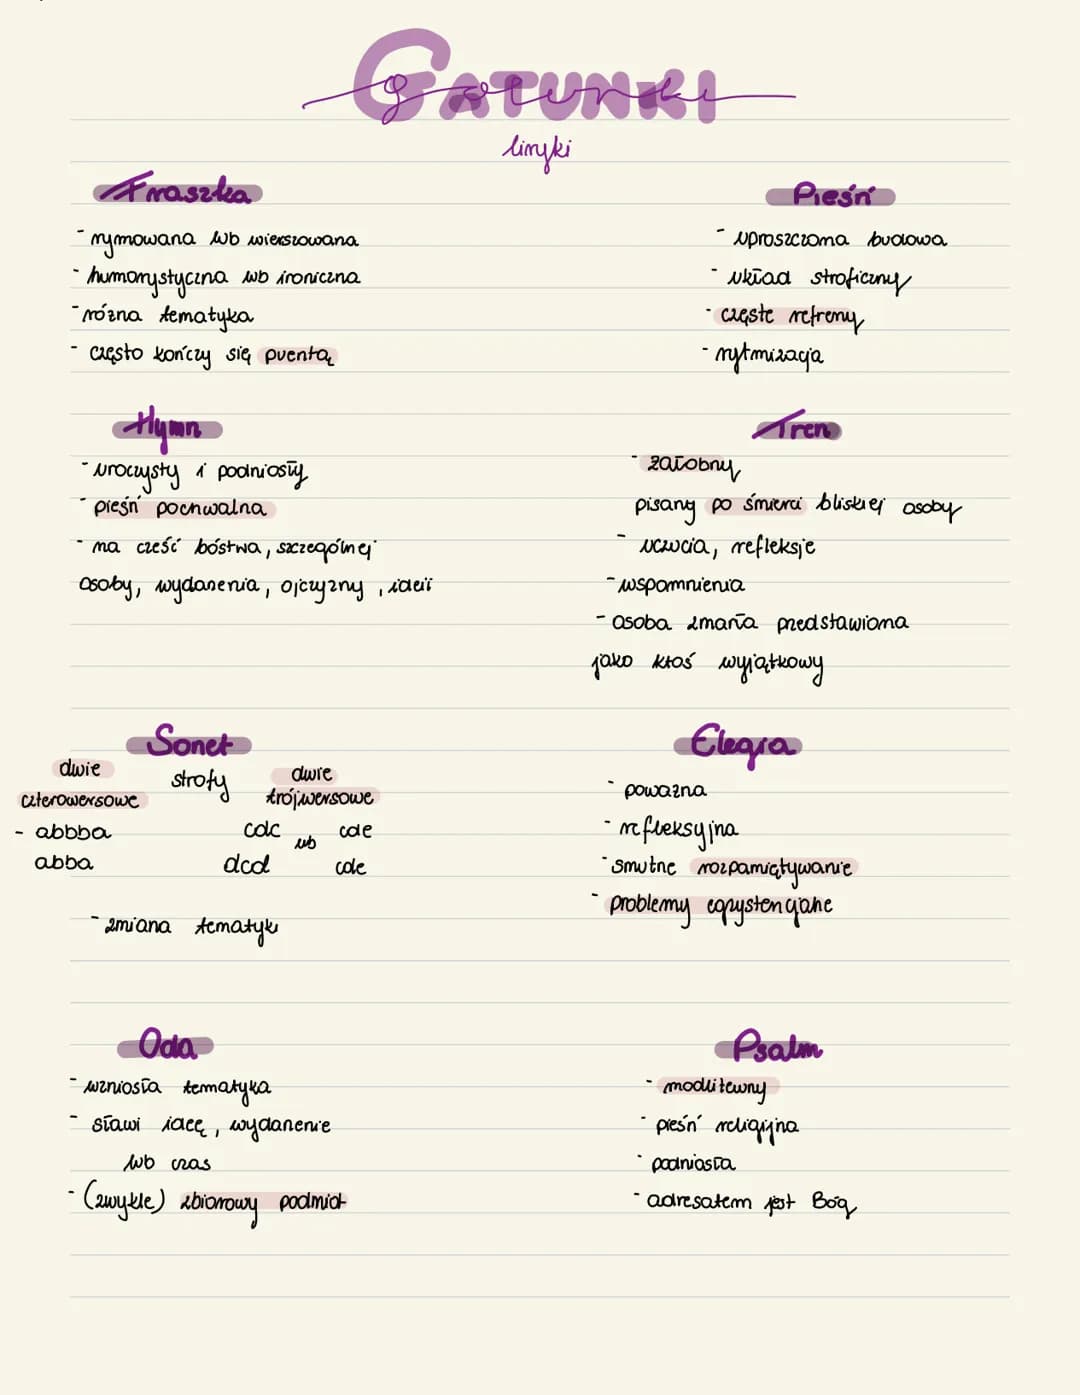 GATUNKI
gatunki
liryki
Fraszka
- rymowana lub wierszowana
- humorystyczna lub ironiczna
- różna tematyka
- często kończy się puentą
Pieśń
- uproszczona budowa
- układ stroficzny
- częste refreny
- rytmizacja
Hymn
- uroczysty i podniosły
- pieśń pochwalna
- na cześć bóstwa, szczególnej
osoby, wydarzenia, ojczyzny, ideii
Tren
- żałobny
pisany po śmierci bliskiej osoby
- uczucia, refleksje
- wspomnienia
- osoba zmarła przedstawiona
jako ktoś wyjątkowy
Sonet
dwie czterowersowe strofy dwie trójwersowe
- abbba
abba
cdc lub cde
dcd cde
- zmiana tematyki
Elegia
- poważna
- refleksyjna
- smutne rozpamiętywanie
- problemy egzystencjalne
Oda
- wzniosła tematyka
- sławi ideę, wydarzenie
lub czas
- (zwykle) zbiorowy podmiot
Psalm
- modlitewny
- pieśń religijna
- podniosła
- adresatem jest Bóg